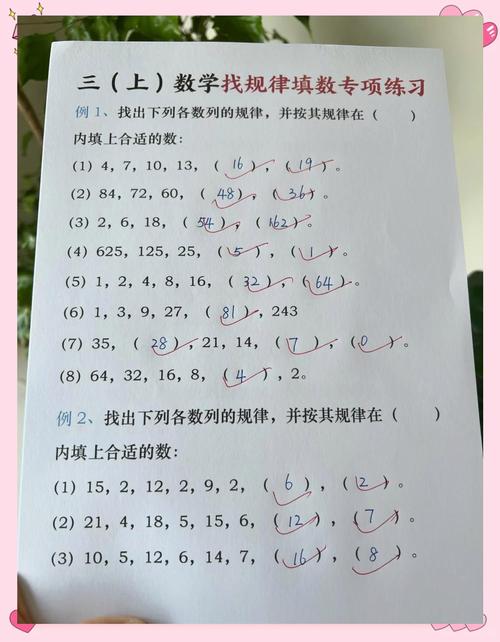 三（上）数学找规律填数专项练习
例1、找出下列各数列的规律，并按其规律在（　）
内填上合适的数：
(1) 4，7，10，13，（16），（19）。
(2) 84，72，60，（48），（36）。
(3) 2，6，18，（54），（162）。
(4) 625，125，25，（5），（1）。
(5) 1，2，4，8，16，（32），（64）。
(6) 1，3，9，27，（81），243
(7) 35，（28），21，14，（7），（0）。
(8) 64，32，16，8，（4），2。
例2、找出下列各数列的规律，并按其规律在（　）
内填上合适的数：
(1) 15，2，12，2，9，2，（6），（2）。
(2) 21，4，18，5，15，6，（12），（7）。
(3) 10，5，12，6，14，7，（16），（8）。